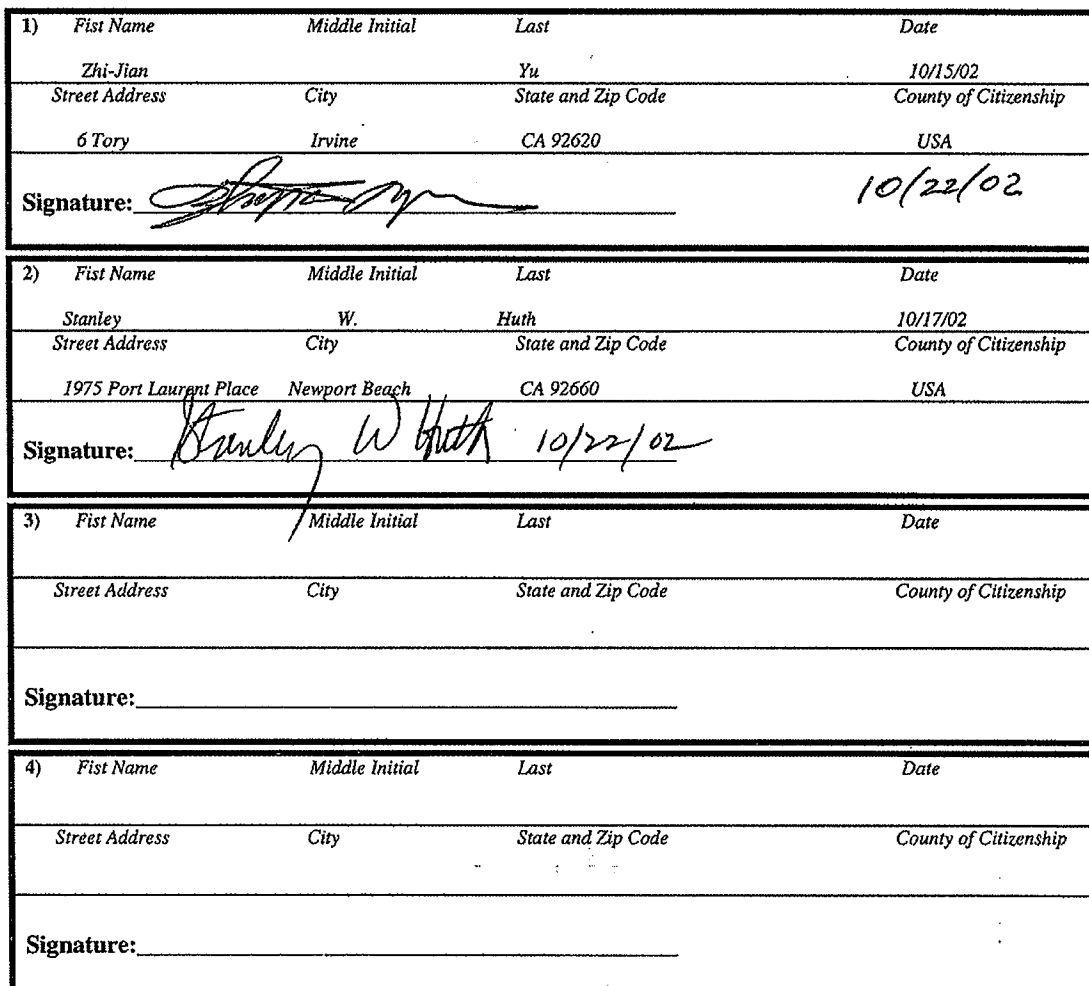 1) Fist Name Middle Initial Last Date
Zhi-Jian Yu 10/15/02
Street Address City State and Zip Code County of Citizenship
6 Tory Irvine CA 92620 USA
Signature: 10/22/02
2) Fist Name Middle Initial Last Date
Stanley W. Huth 10/17/02
Street Address City State and Zip Code County of Citizenship
1975 Port Laurent Place Newport Beach CA 92660 USA
Signature: Stanley W Huth 10/22/02
3) Fist Name Middle Initial Last Date
Street Address City State and Zip Code County of Citizenship
Signature:
4) Fist Name Middle Initial Last Date
Street Address City State and Zip Code County of Citizenship
Signature: